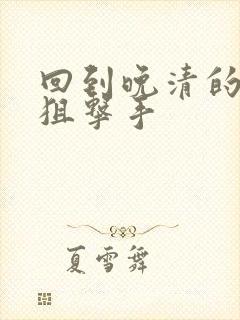 回到晚清的
狙擊手
夏雪舞